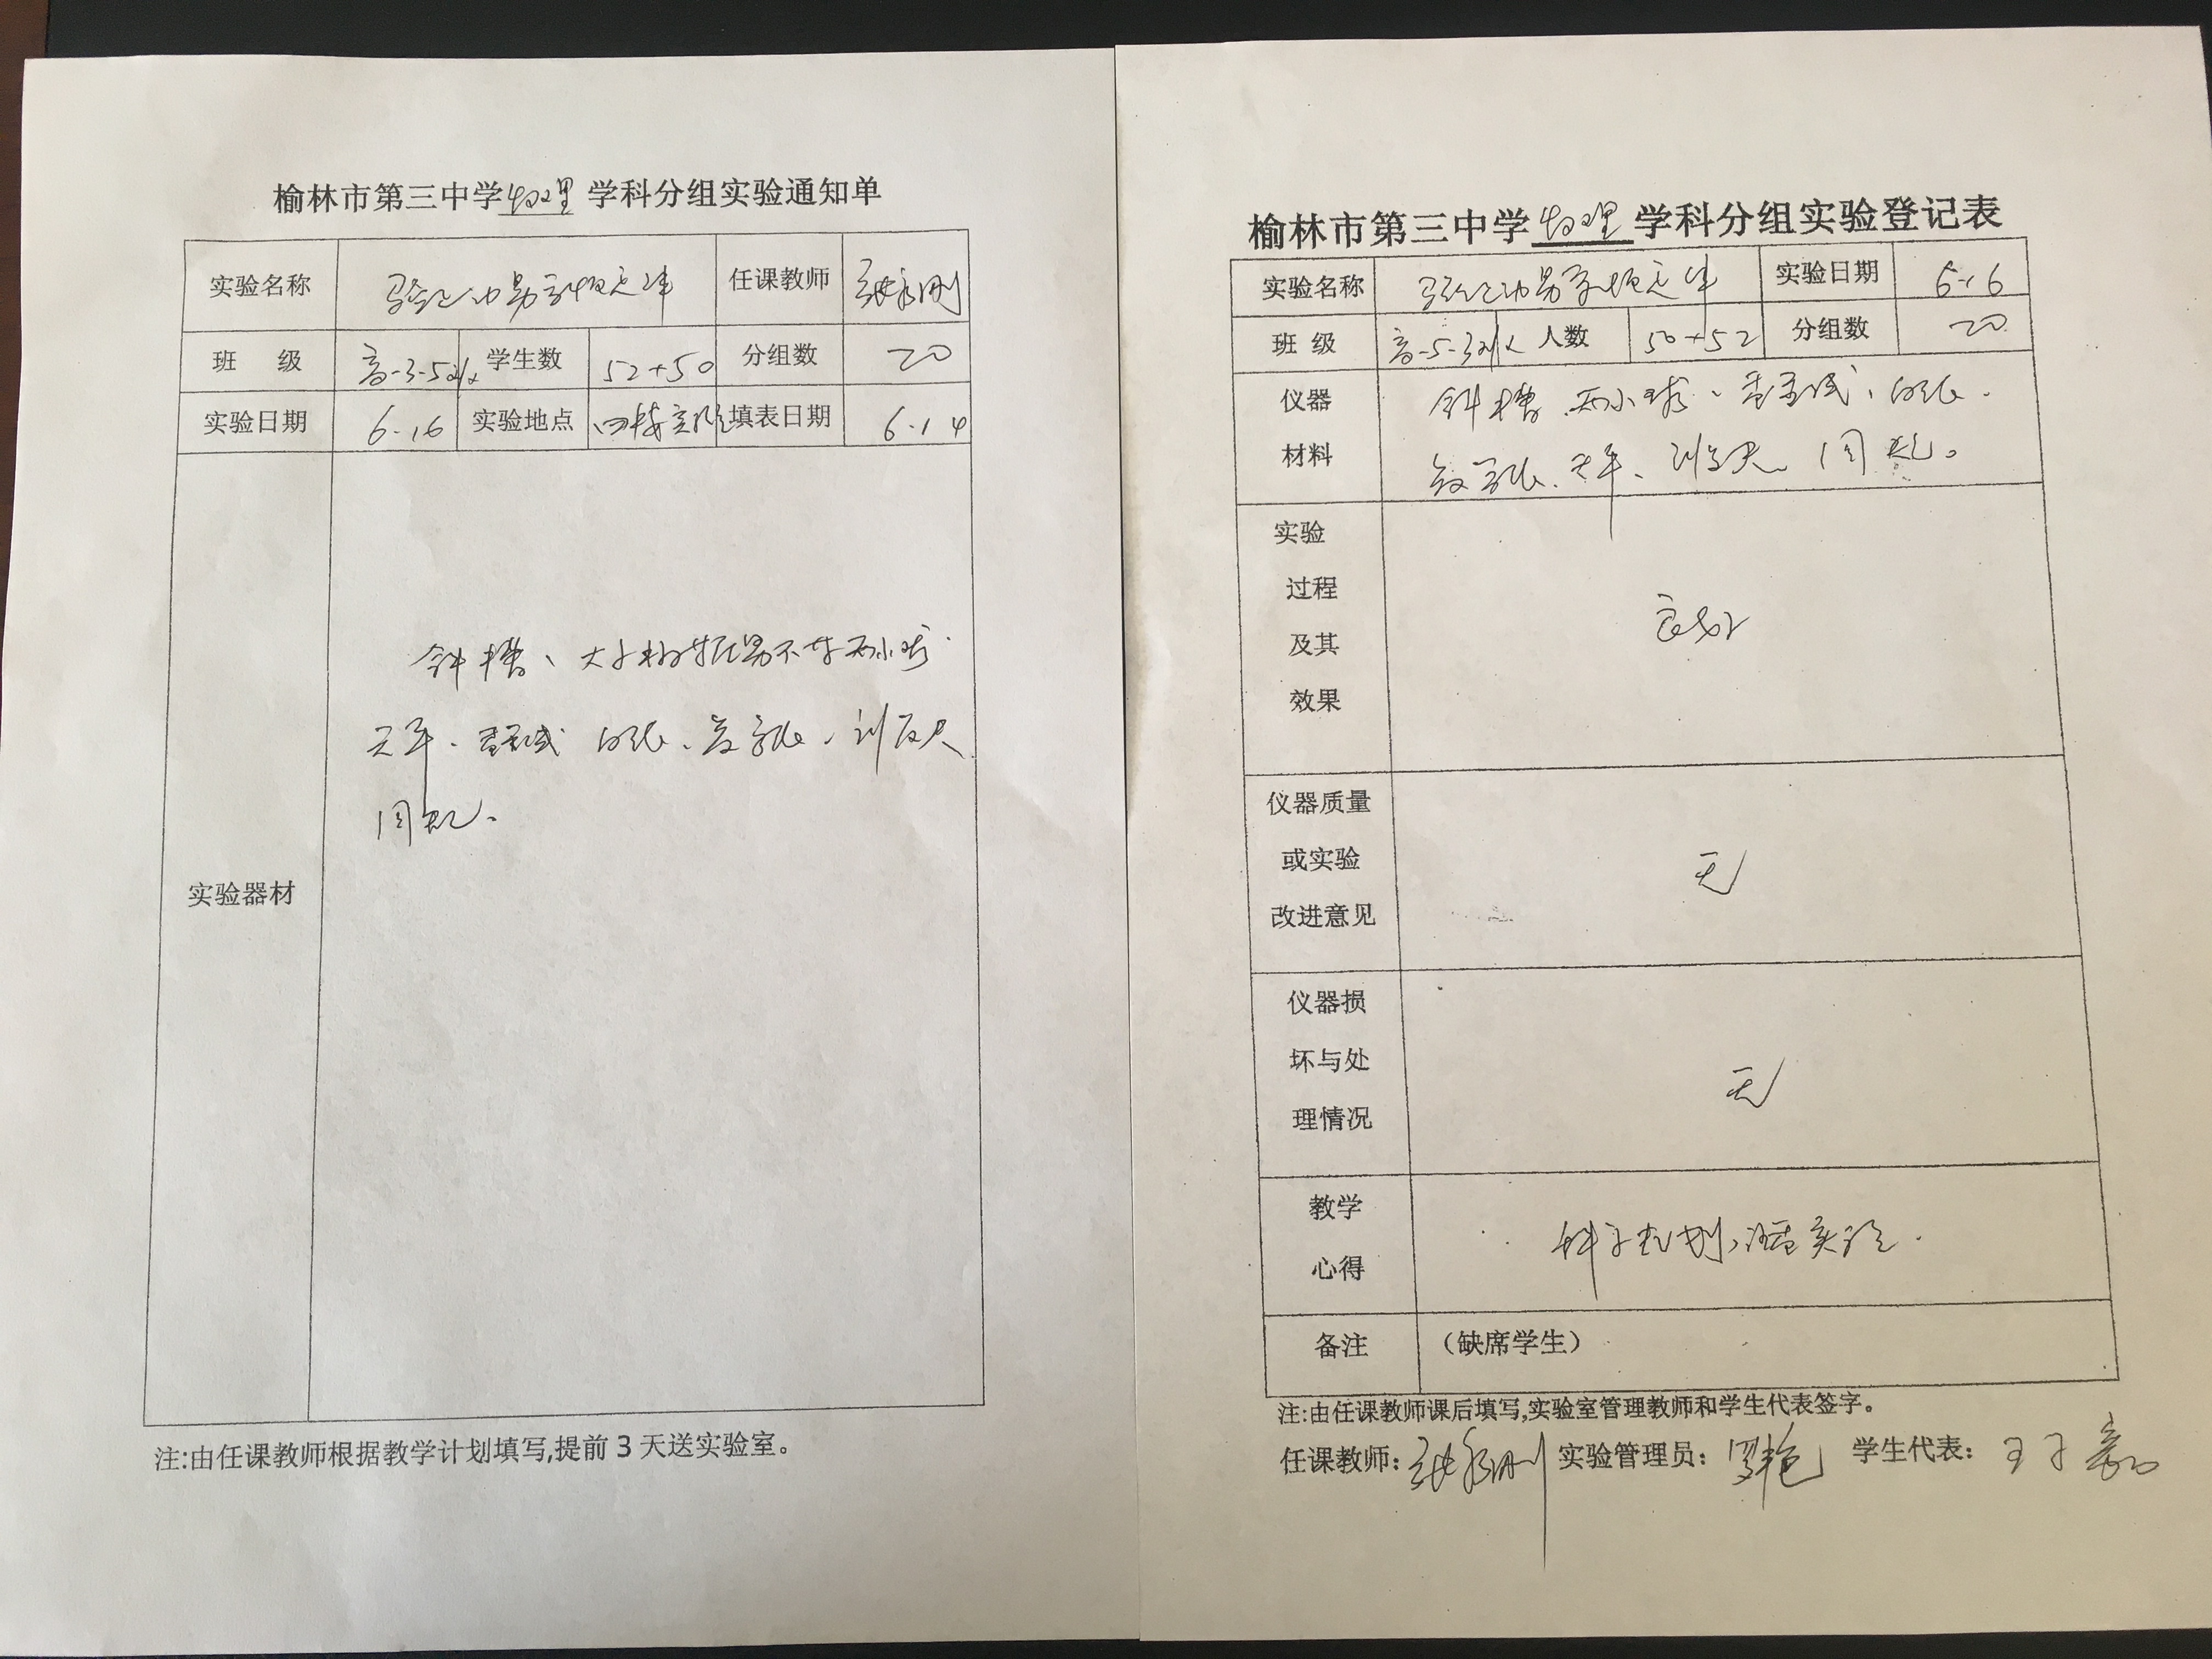 榆林市第三中学物理学科分组实验通知单
实验名称 验证动量守恒定律 任课教师
班 级 高一3.5 学生数 52+50 分组数 20
实验日期 6.16 实验地点 填表日期 6.14
实验器材
斜槽、大小相等质量不等两小球
天平、重垂线 白纸、复写纸、刻度尺
圆规。
注:由任课教师根据教学计划填写,提前3天送实验室。
榆林市第三中学物理学科分组实验登记表
实验名称 验证动量守恒定律 实验日期 6.16
班 级 高一5.3 人数 50+52 分组数 20
仪器
材料
斜槽、两小球、重垂线、白纸、
复写纸、天平、刻度尺、圆规。
实验
过程
及其
效果
良好
仪器质量
或实验
改进意见
无
仪器损
坏与处
理情况
无
教学
心得
实验.
备注 (缺席学生)
注:由任课教师课后填写,实验室管理教师和学生代表签字。
任课教师: 实验管理员: 学生代表: